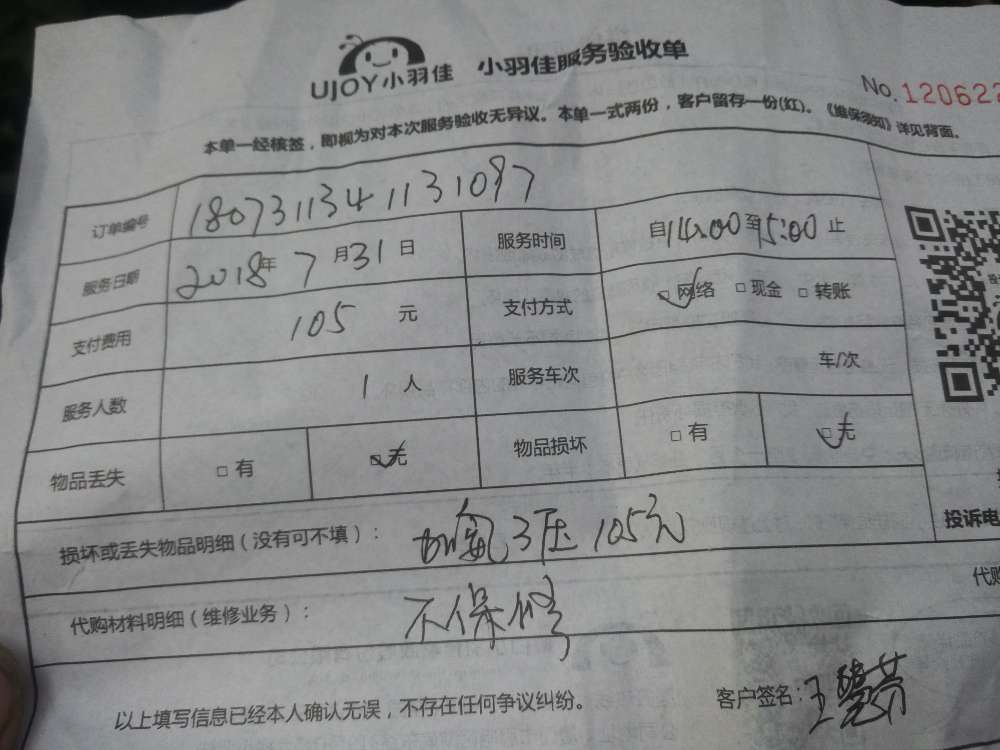 UJOY小羽佳 小羽佳服务验收单
No.120622
本单一经核签，即视为对本次服务验收无异议。本单一式两份，客户留存一份(红)。《维保须知》详见背面。
订单编号 1807311341131097
服务日期 2018年 7 月31 日 服务时间 自14:00至15:00 止
支付费用 105 元 支付方式 □网络 □现金 □转账
服务人数 1 人 服务车次 车/次
物品丢失 □有 □无 物品损坏 □有 □无
投诉电
损坏或丢失物品明细（没有可不填）： 加氟3压 105元
代购
代购材料明细（维修业务）： 不保修
以上填写信息已经本人确认无误，不存在任何争议纠纷。 客户签名：王